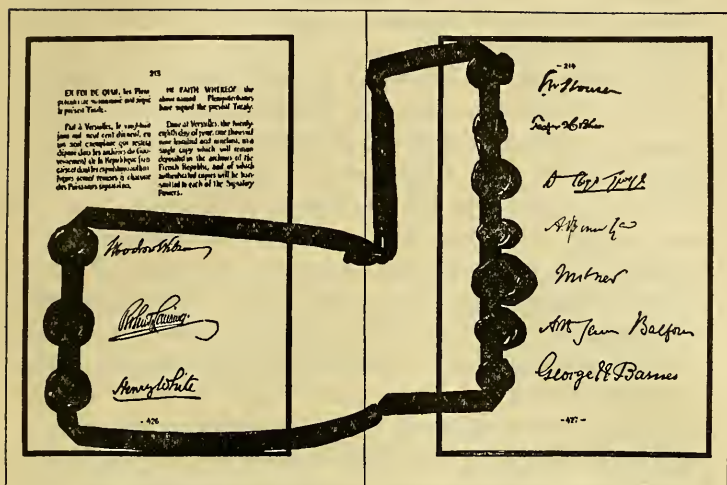 213
EN FOI DE QUOI, les Pléni-
potentiaires susnommés ont signé
le présent Traité.
Fait à Versailles, le vingt-huit
juin mil neuf cent dix-neuf, en
un seul exemplaire qui restera
déposé dans les archives du Gou-
vernement de la République fran-
çaise et dont les expéditions authen-
tiques seront remises à chacune
des Puissances signataires.
IN FAITH WHEREOF the
above-named Plenipotentiaries
have signed the present Treaty.
Done at Versailles, the twenty-
eighth day of June, one thousand
nine hundred and nineteen, in a
single copy which will remain
deposited in the archives of the
French Republic, and of which
authenticated copies will be trans-
mitted to each of the Signatory
Powers.
Woodrow Wilson
Robert Lansing
Henry White
- 426
- 214
D Lloyd George
A Bonar Law
Milner
Arthur James Balfour
George N Barnes
- 427 -